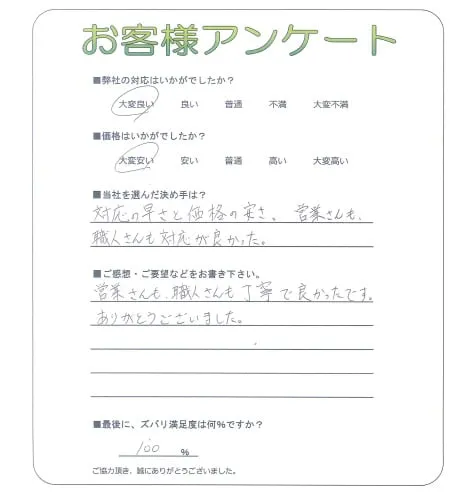 お客様アンケート
■弊社の対応はいかがでしたか？
大変良い 良い 普通 不満 大変不満
■価格はいかがでしたか？
大変安い 安い 普通 高い 大変高い
■当社を選んだ決め手は？
対応の早さと価格の安さ、営業さんも、
職人さんも対応が良かった。
■ご感想・ご要望などをお書き下さい。
営業さんも、職人さんも丁寧で良かったです。
ありがとうございました。
■最後に、ズバリ満足度は何%ですか？
100 %
ご協力頂き、誠にありがとうございました。